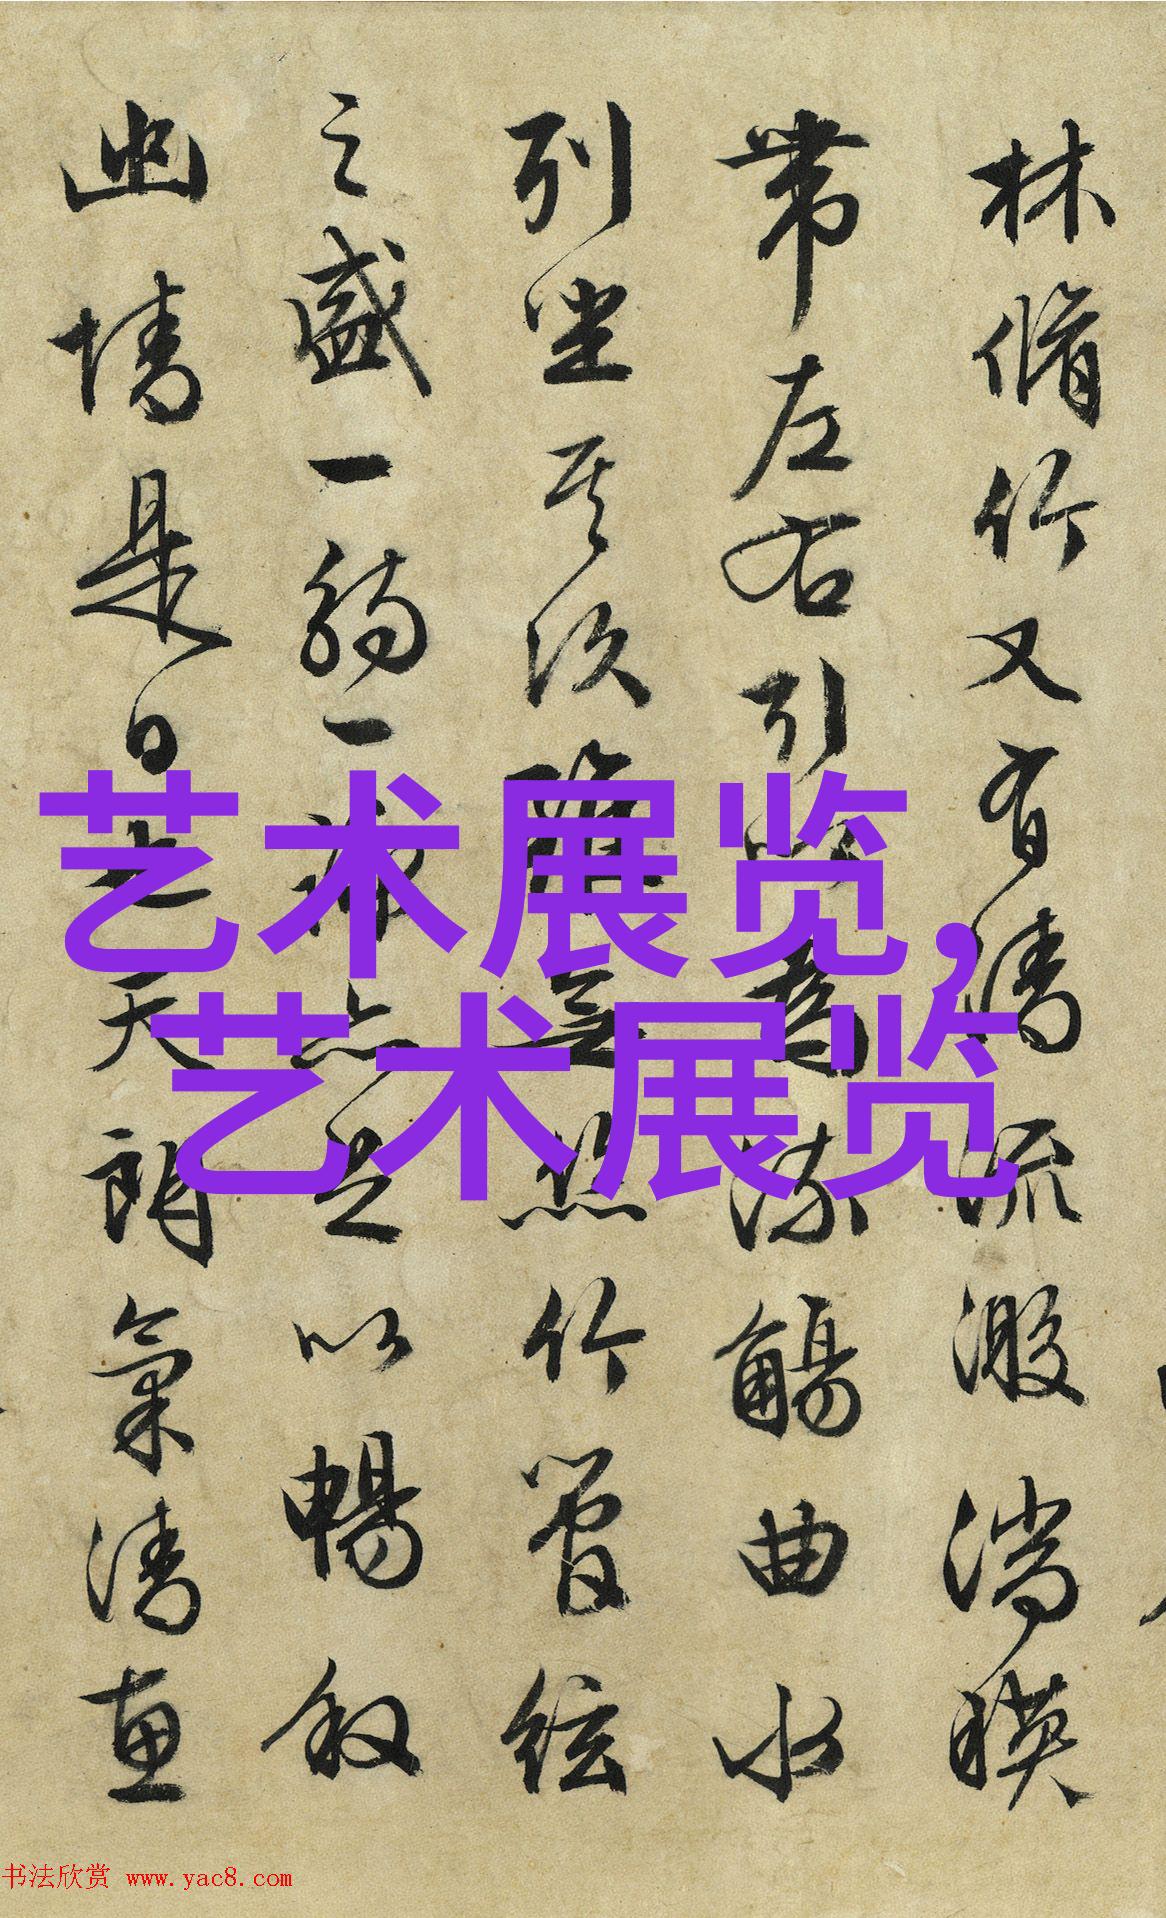 林脩竹又有清流激湍暎
帶左右引以為流觴曲水
列坐其次雖無絲竹管絃
之盛一觴一詠亦足以暢叙
幽情是日也天朗氣清惠
艺术展览，
艺术展览
书法欣赏 www.yac8.com